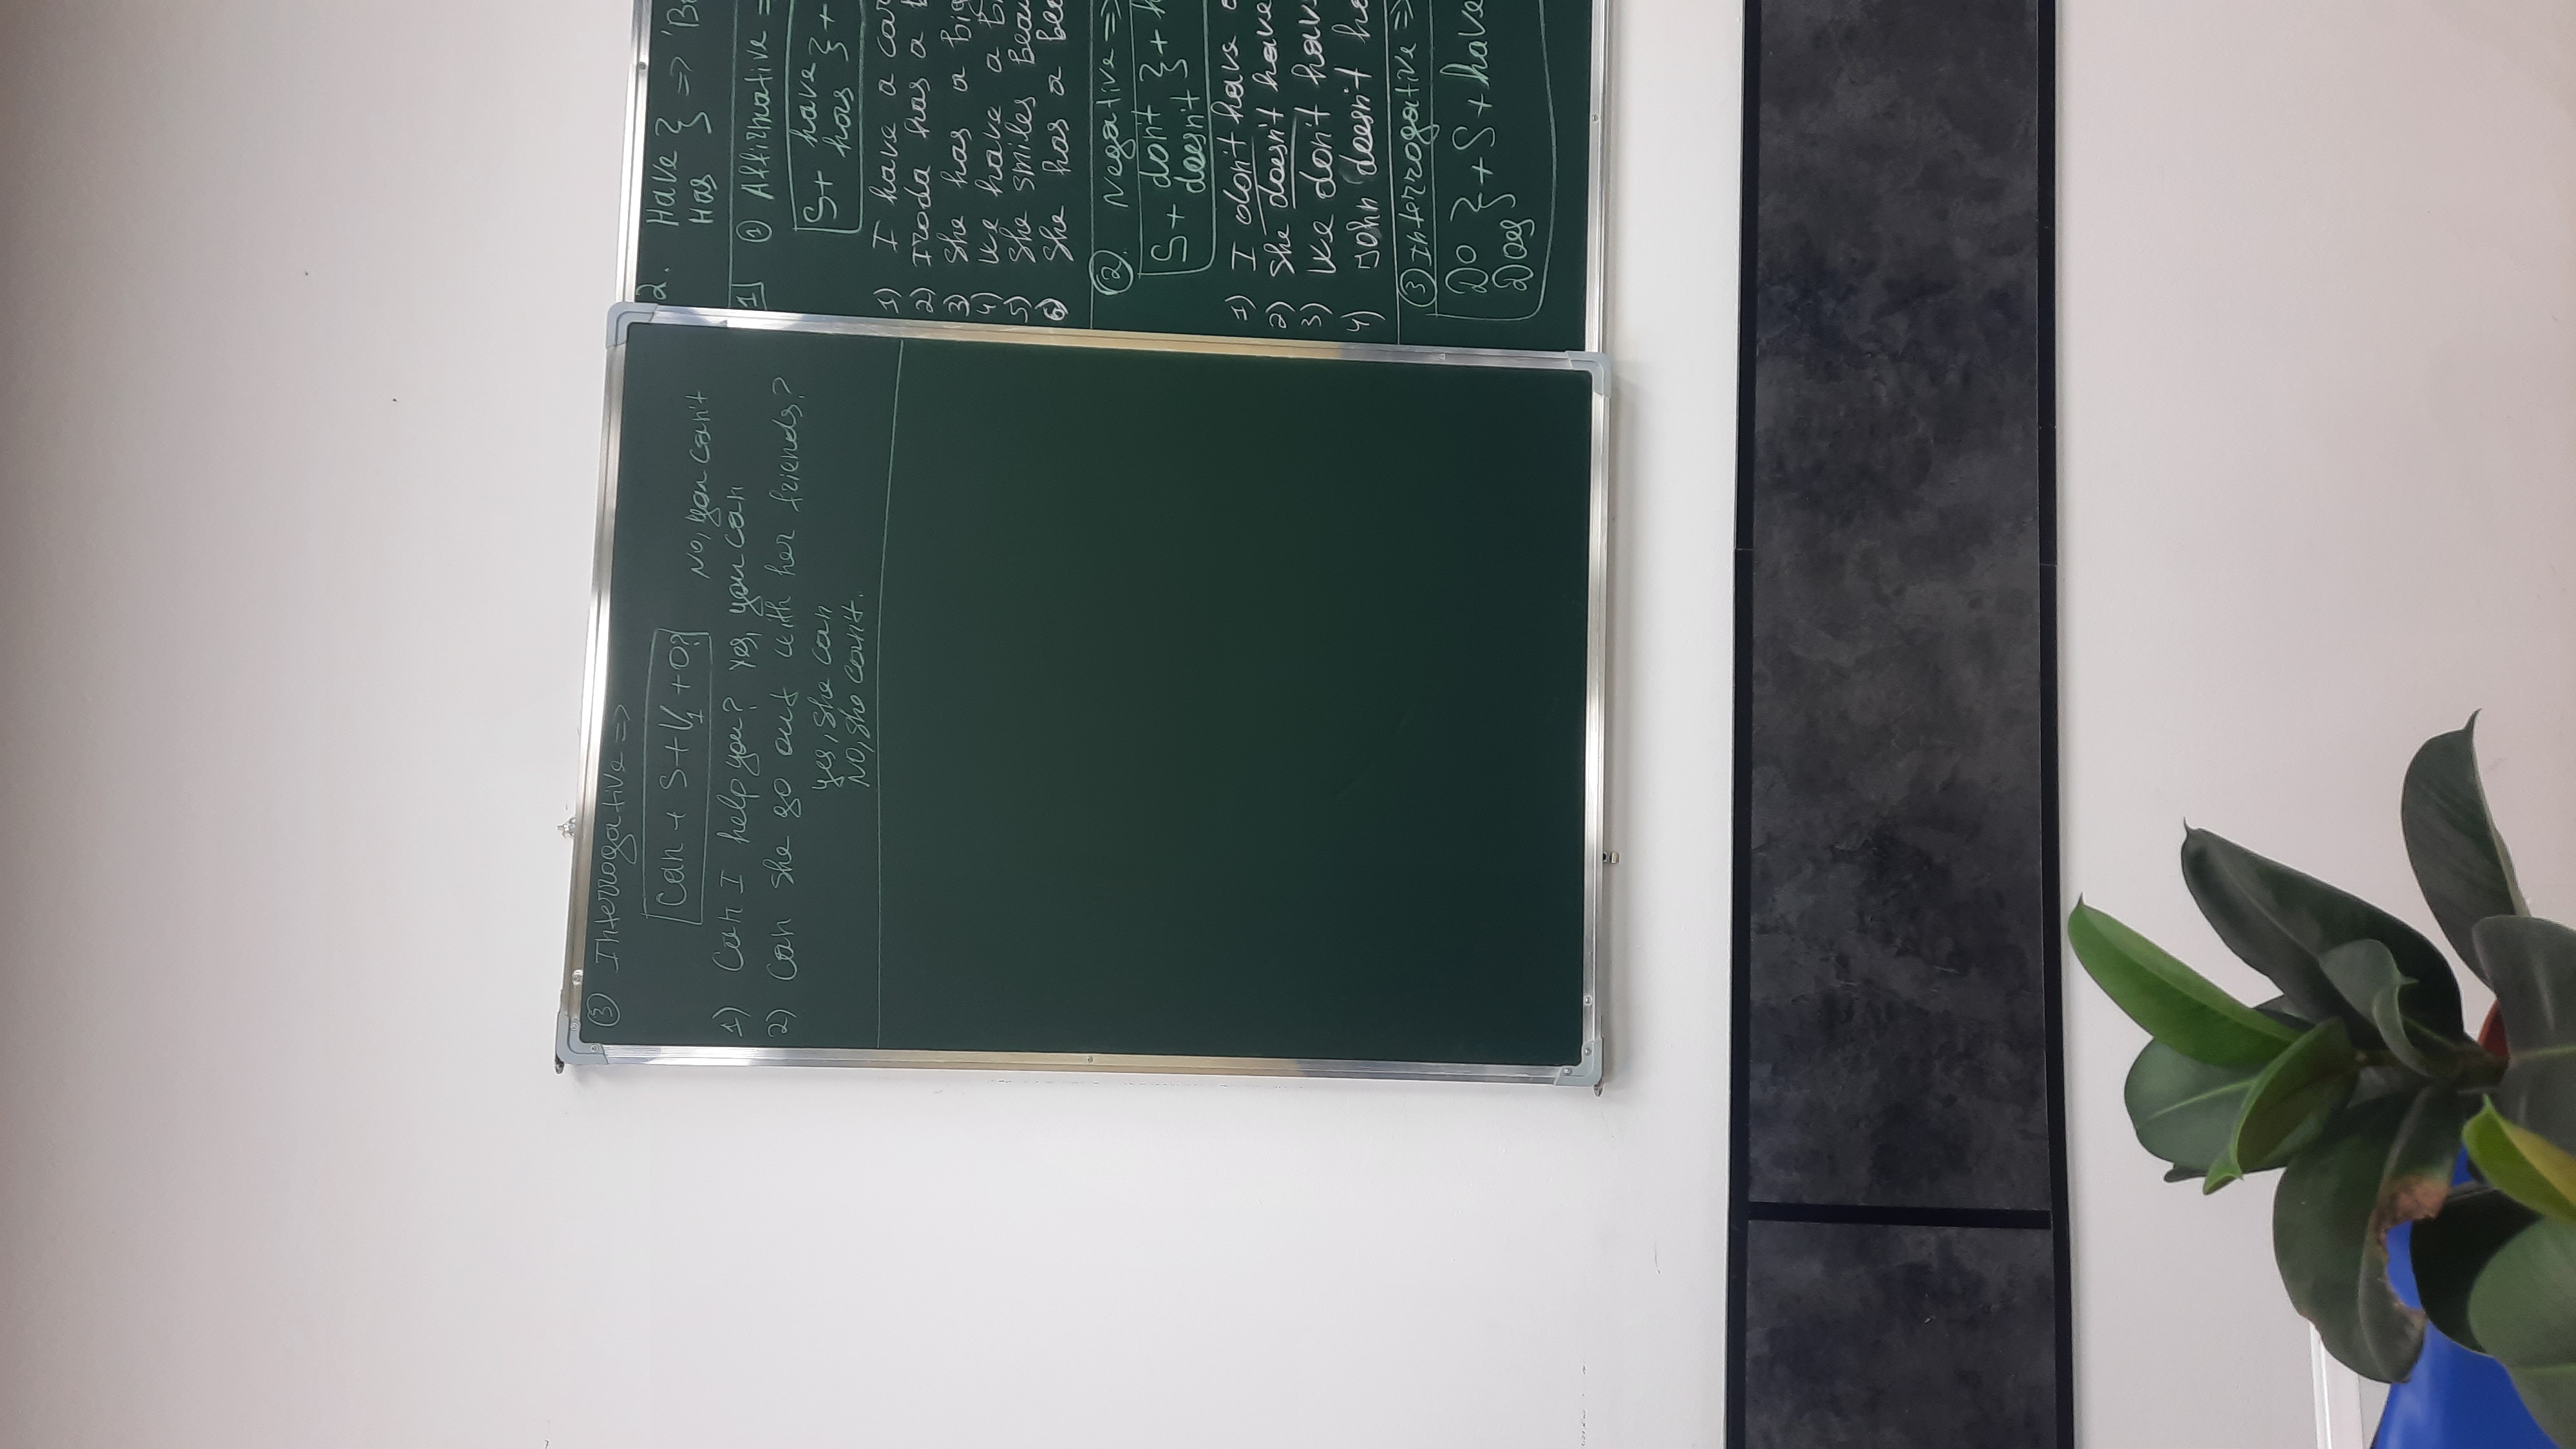 ③ Interrogative =>
Can + S + V1 + O?
No, you can't
1) Can I help you? Yes, you can
2) Can she go out with her friends?
yes, she can
No, she can't.
2. Have } =>
Has
1 ① Affirmative =
S + have } +
has
1) I have a car
2) Iroda has a
3) She has a big
4) We have a
5) She smiles
6) She has a
②. Negative =>
S + don't } +
doesn't
1) I don't have
2) She doesn't have
3) We don't have
4) John doesn't
③ Interrogative =>
Do } + S + have
Does